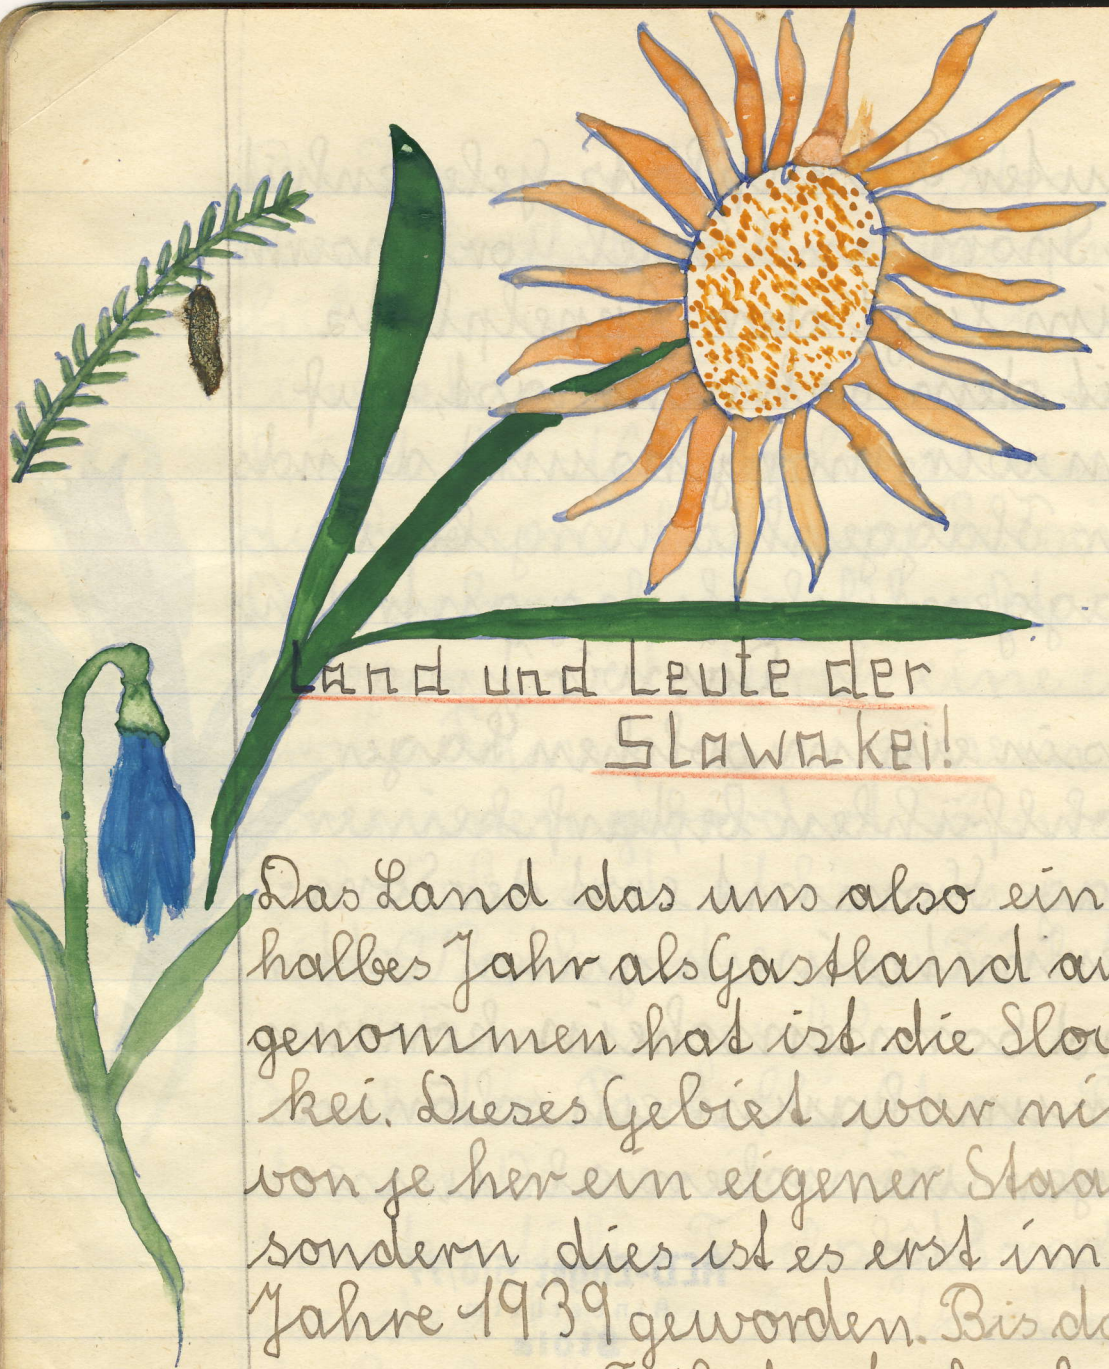 Land und Leute der
Slowakei!
Das Land das uns also ein
halbes Jahr als Gastland au
genommen hat ist die Slow
kei. Dieses Gebiet war ni
von je her ein eigener Staa
sondern dies ist es erst im
Jahre 1939 geworden. Bis da